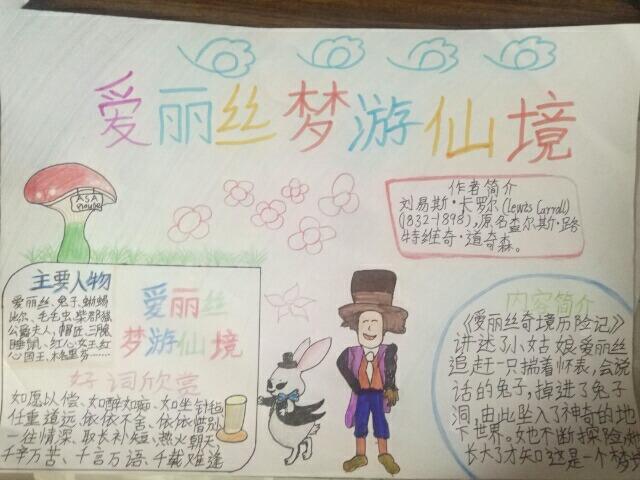 爱丽丝梦游仙境
作者简介
刘易斯·卡罗尔(Lewis Carroll)
(1832-1898),原名查尔斯·路
特维奇·道奇森。
ASA
house
主要人物
爱丽丝、兔子、蜥蜴
比尔、毛毛虫、柴郡猫
公爵夫人、帽匠、三月兔
睡鼠、红心女王、红
心国王、
爱丽丝
梦游仙境
好词欣赏
如愿以偿、如醉如痴、如坐针毡
任重道远、依依不舍、依依惜别
一往情深、取长补短、热火朝天
千辛万苦、千言万语、千载难逢
内容简介
《爱丽丝奇境历险记》
讲述了小姑娘爱丽丝
追赶一只揣着怀表,会说
话的兔子,掉进了兔子
洞,由此坠入了神奇的地
下世界。她不断探险
长大了才知这是一个梦